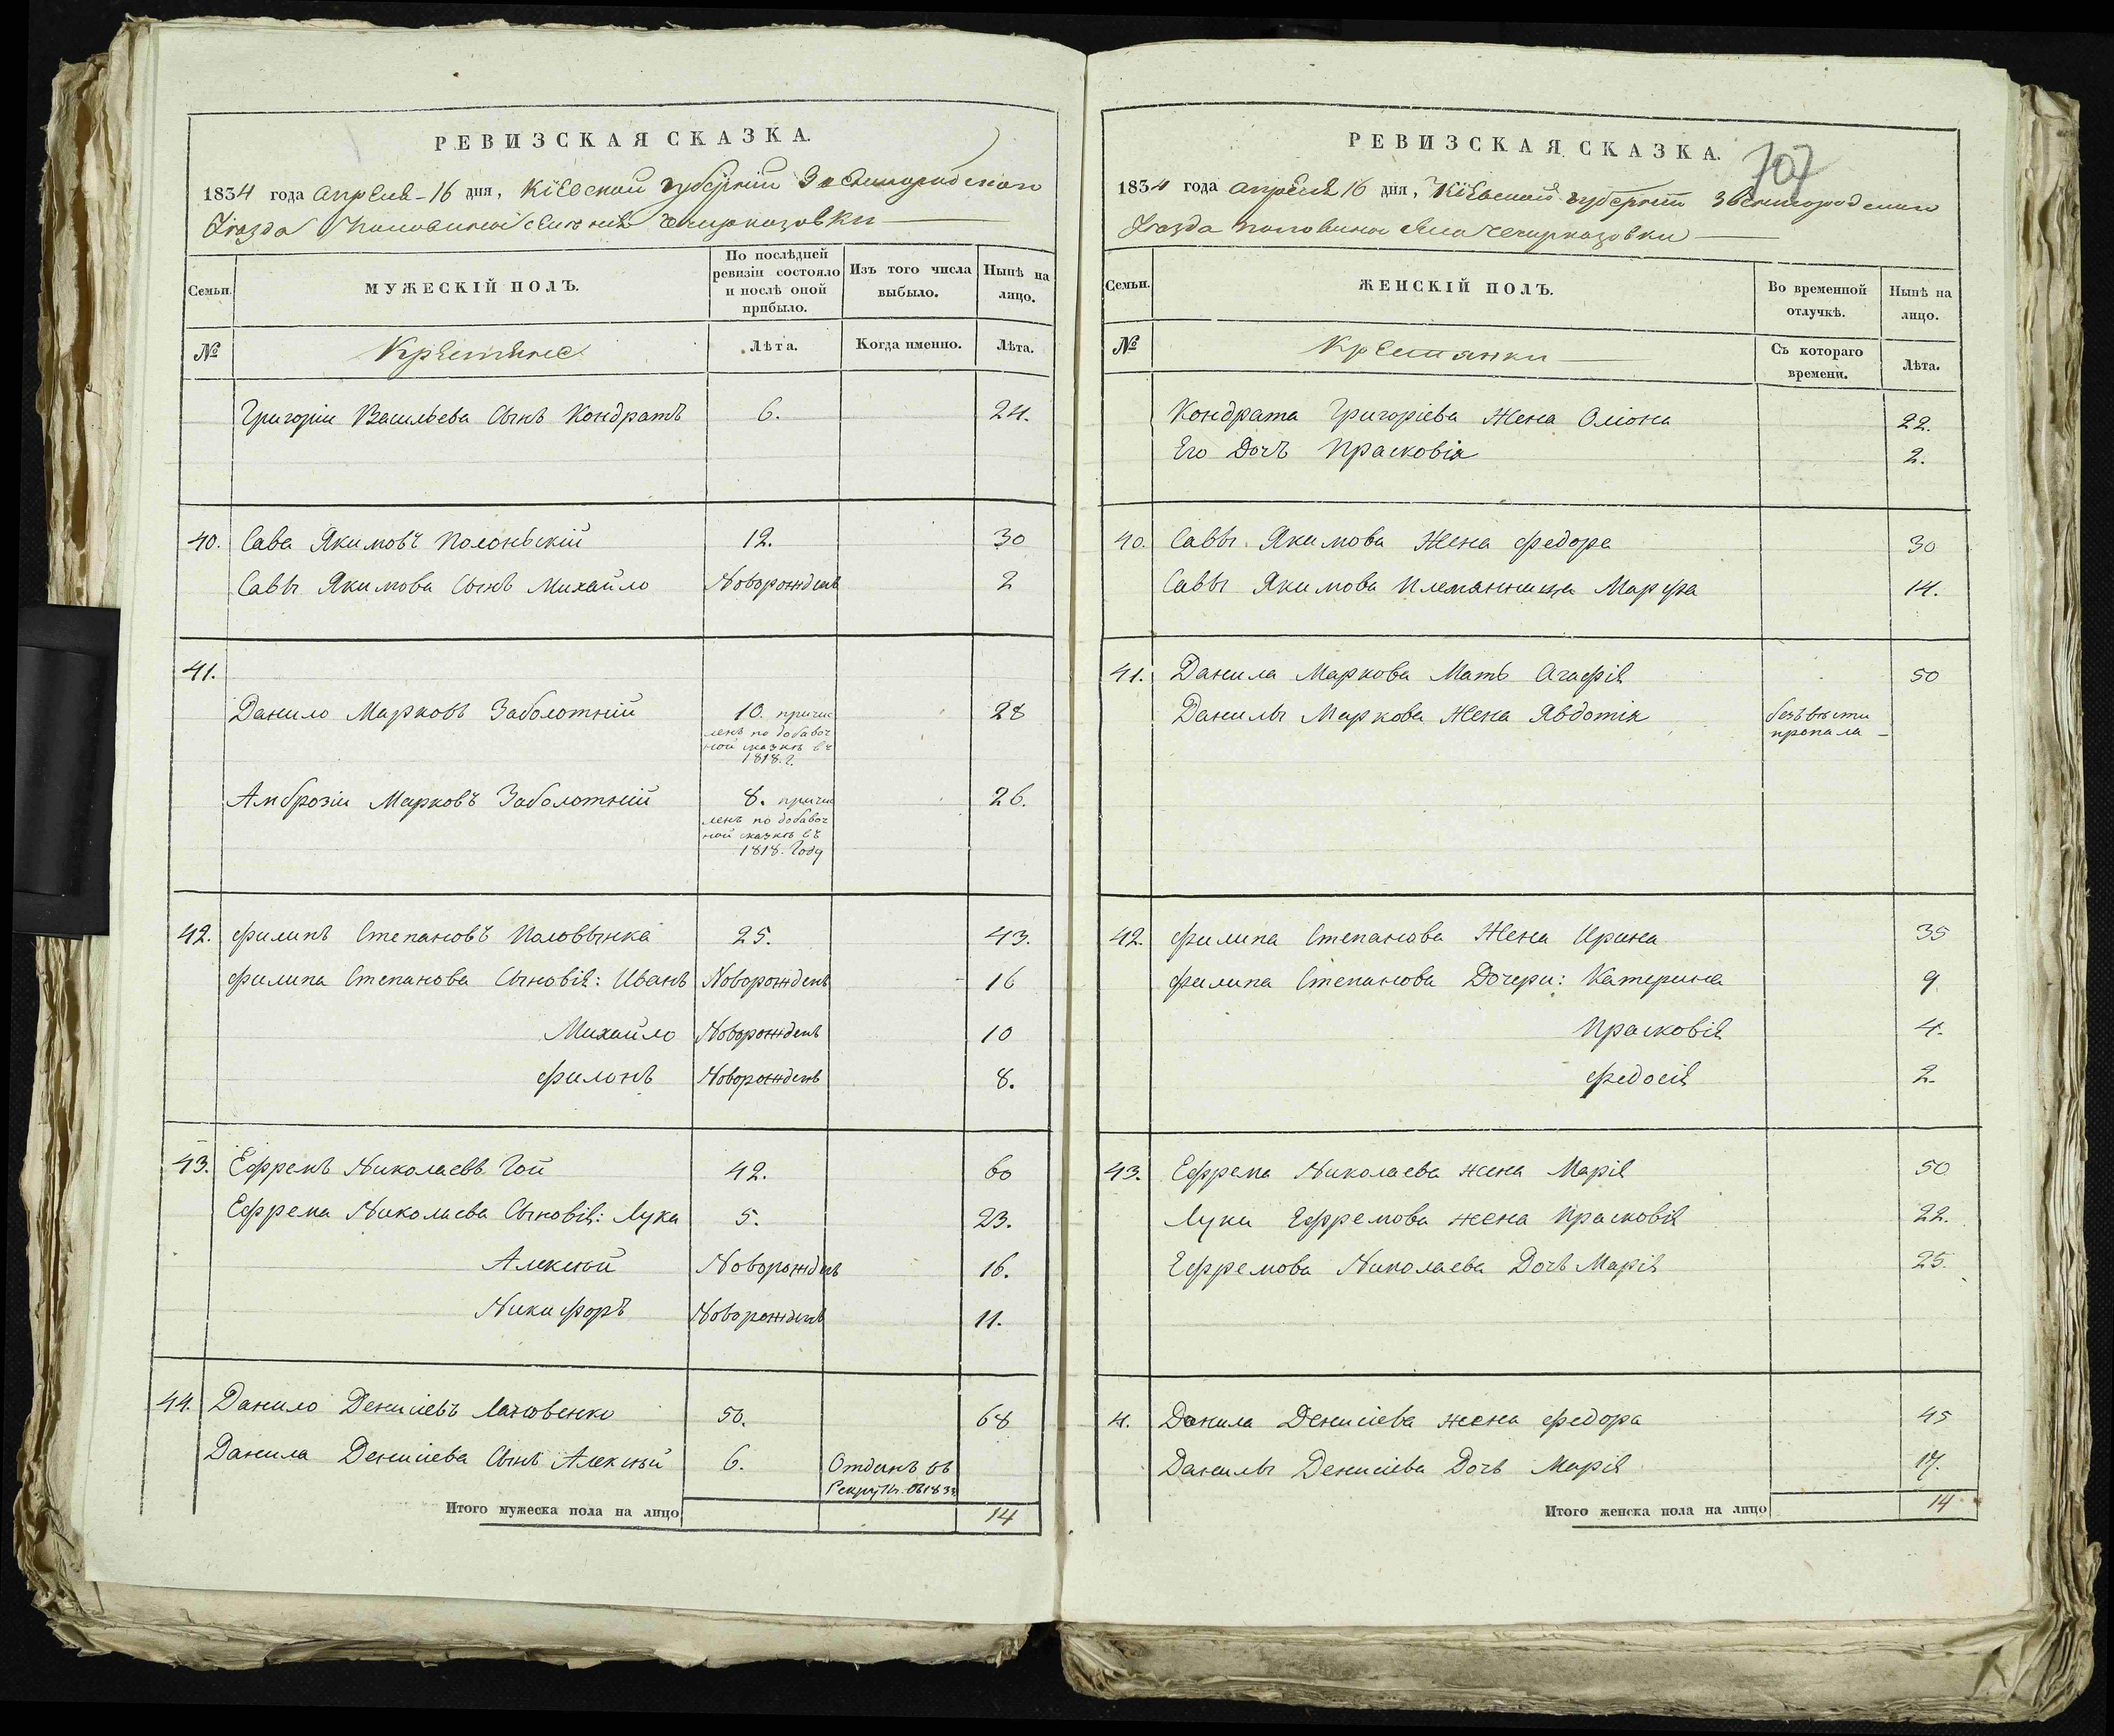 РЕВИЗСКАЯ СКАЗКА.
1834 года апреля 16 дня, Кіевской губерніи Звенигородскаго
Уѣзда Половины селенія Чичиркозовки
Семьи. МУЖЕСКІЙ ПОЛЪ. По послѣдней ревизіи состояло и послѣ оной прибыло. Изъ того числа выбыло. Нынѣ на лицо.
№ Крестяне Лѣта. Когда именно. Лѣта.
Григорія Васильева Сынъ Кондратъ 6. 24.
40. Сава Якимовъ Полонскій 12. 30
Савы Якимова Сынъ Михайло Новорожденъ 2
41.
Данило Марковъ Заболотній 10. причис 28
ленъ по добавоч
ной сказкѣ въ
1818. г.
Амброзій Марковъ Заболотній 8. причис 26.
ленъ по добавоч
ной сказкѣ въ
1818. Году
42. Филипъ Степановъ Половынка 25. 43.
Филипа Степанова Сыновія: Иванъ Новорожденъ 16
Михайло Новорожденъ 10
Филонъ Новорожденъ 8.
43. Ефремъ Николаевъ Гой 42. 60
Ефрема Николаева Сыновія: Лука 5. 23.
Алексѣй Новорожденъ 16.
Никифоръ Новорожденъ 11.
44. Данило Денисіевъ 50. 68
Данила Денисіева Сынъ Алексѣй 6. Отданъ въ
Рекруты. въ 183
Итого мужеска пола на лицо 14
РЕВИЗСКАЯ СКАЗКА.
707
1834 года апреля 16 дня, Кіевской губерніи Звенигородскаго
Уѣзда половины села Чичиркозовки
Семьи. ЖЕНСКІЙ ПОЛЪ. Во временной отлучкѣ. Нынѣ на лицо.
№ Крестянки Съ котораго времени. Лѣта.
Кондрата Григоріева Жена Оліона 22.
Его Дочь Прасковія 2.
40. Саввы Якимова Жена Федора 30
Саввы Якимова Племянница Марфа 14.
41. Данила Маркова Мать Агафія 50
Данилы Маркова Жена Явдотія безъвѣсти
пропала
42. Филипа Степанова Жена Ирина 35
Филипа Степанова Дочери: Катерина 9
Прасковія 4.
Федосія 2.
43. Ефрема Николаева жена Марія 50
Луки Ефремова жена Прасковія 22.
Ефремова Николаева Дочь Марія 25.
4. Данила Денисіева жена Федора 45
Данилы Денисіева Дочь Марія 17.
Итого женска пола на лицо 14